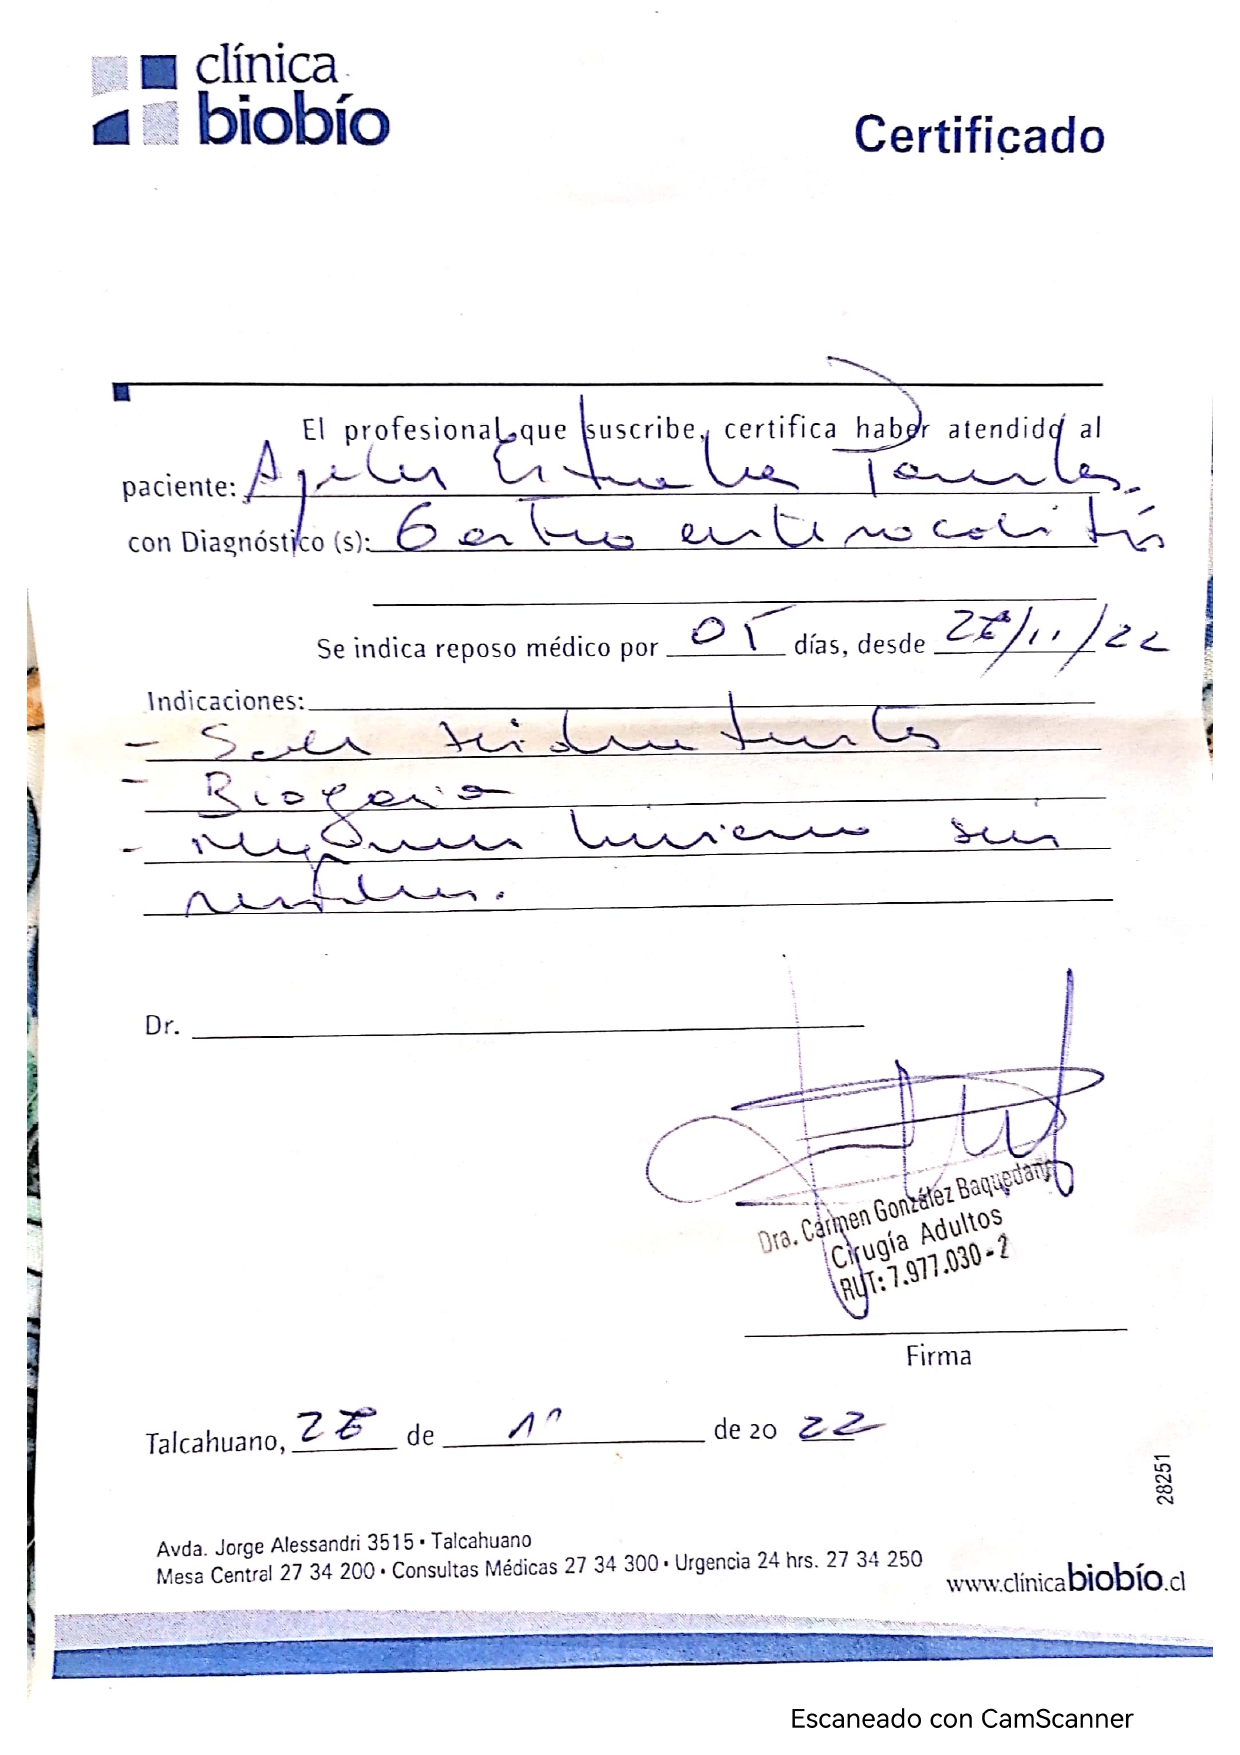 clínica
biobío
Certificado
El profesional que suscribe, certifica haber atendido al
paciente:
con Diagnóstico (s): Gastro enterocolitis
Se indica reposo médico por 05 días, desde /11/22
Indicaciones:
- Sales rehidratantes
- Biogaia
- Regimen liviano sin
residuos.
Dr.
Dra. Carmen González Baquedano
Cirugía Adultos
RUT: 7.977.030-2
Firma
Talcahuano, de 11 de 20 22
28251
Avda. Jorge Alessandri 3515 • Talcahuano
Mesa Central 27 34 200 • Consultas Médicas 27 34 300 • Urgencia 24 hrs. 27 34 250
www.clínicabiobío.cl
Escaneado con CamScanner